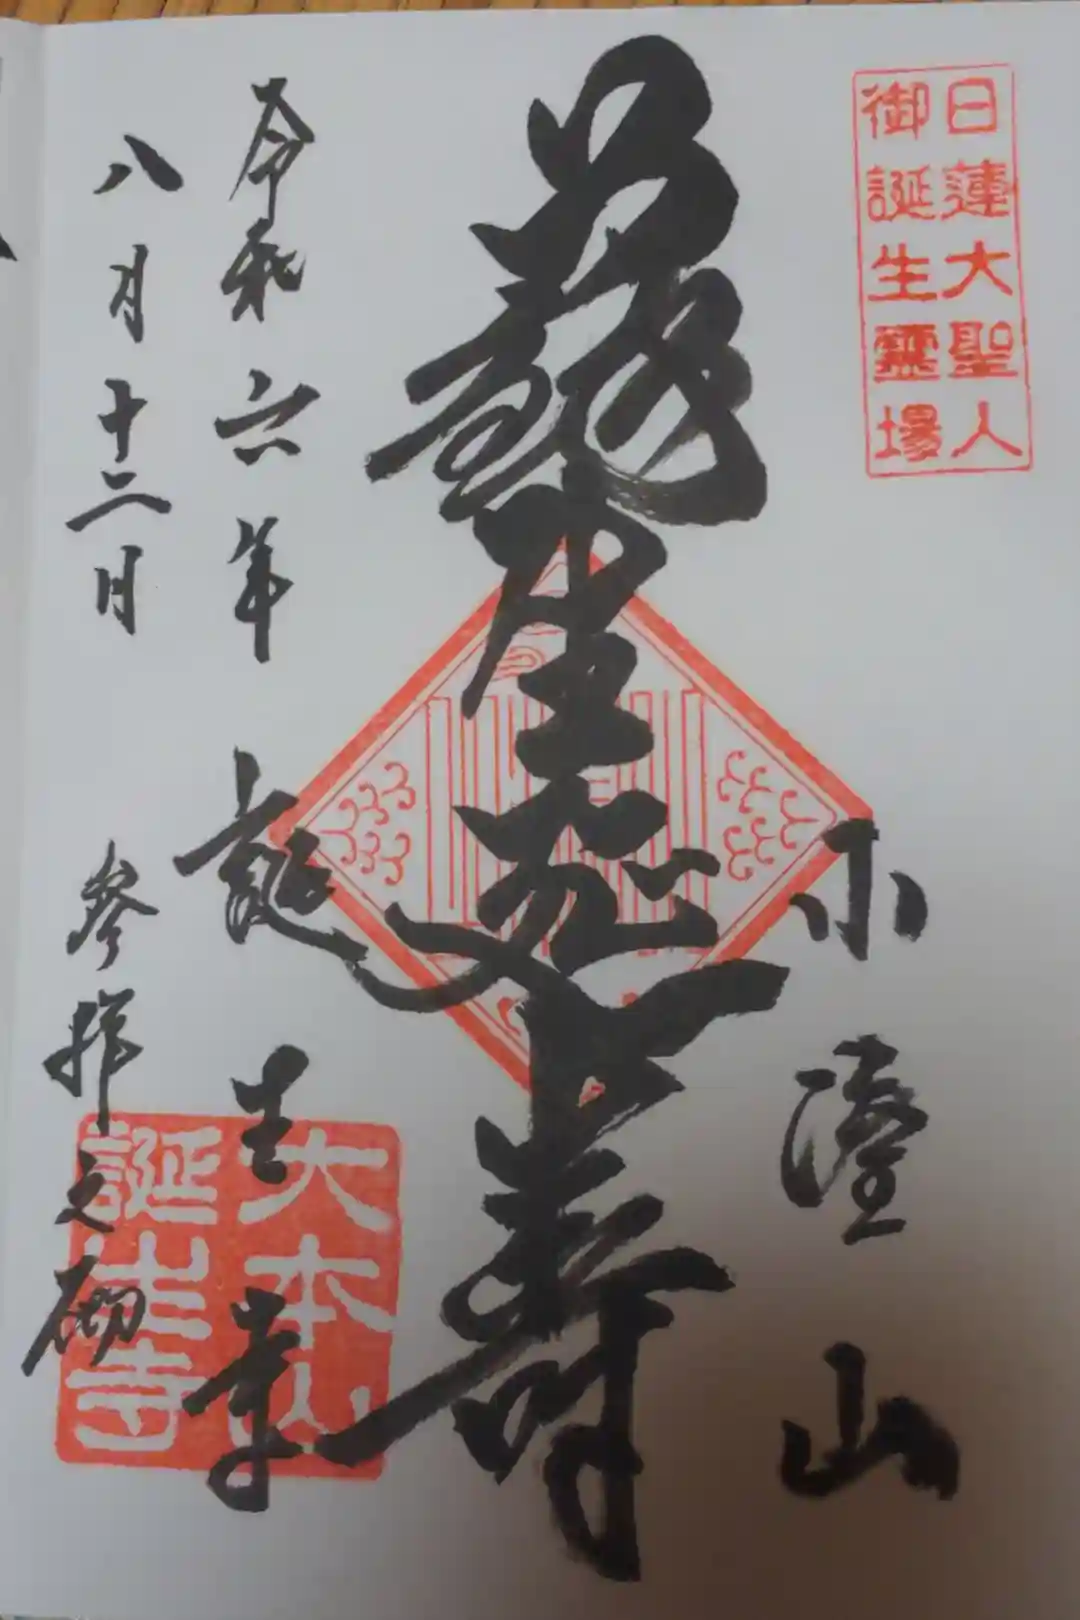 日蓮大聖人
御誕生靈場
小湊山
蘇生延壽
令和六年 誕生寺
八月十二日 参拝之砌
大本山
誕生寺